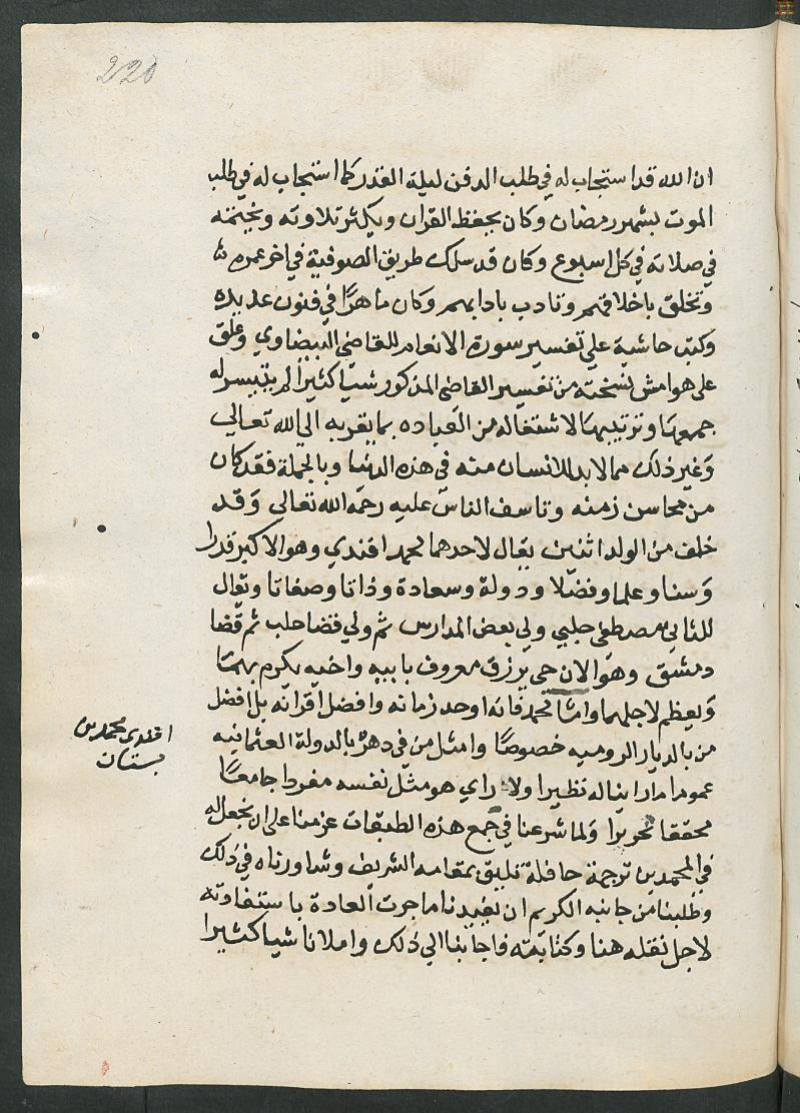 220
ان الله قد استجاب له في طلب الدفن ليلة القدر كما استجاب له في طلب
الموت بشهر رمضان وكان يحفظ القران ويكثر تلاوته ويختمه
في صلاته في كل اسبوع وكان قد سلك طريق الصوفية في اخر عمره
وتخلق باخلاقهم وتادب بادابهم وكان ماهرًا في فنون عديده
وكتب حاشية علي تفسير سورة الانعام للقاضي البيضاوي وعلق
على هوامش نسخته من تفسير القاضي المذكور شيا كثيرا لم يتيسر له
جمعها وترتيبها لاشتغاله من العباده بما يقربه الي الله تعالي
وغير ذلك مما لابد للانسان منه في هذه الدنيا وبالجملة فقد كان
من محاسن زمنه وتاسف الناس عليه رحمه الله تعالي وقد
خلف من الولد اثنين يقال لاحدهما محمد افندي وهو الاكبر قدرا
وسنا وعلما وفضلا ودولة وسعادة وذاتا وصفاتا ويقال
للثاني مصطفى جلبي ولي بعض المدارس ثم ولي قضا حلب ثم قضا
دمشق وهو الان حي يرزق معروف بابيه واخيه يكرم بهما
ويعظم لاجلهما وامّا محمد فانه اوحد زمانه وافضل اقرانه بل افضل
من بالديار الروميه خصوصًا وامثل من في دهره بالدولة العثمانيه
عموما ما راينا له نظيرا ولا راي هو مثل نفسه مفردا جامعًا
محققا نحريرًا ولما شرعنا في جمع هذه الطبقات عزمنا على ان نجعل له
في المحمدين ترجمة حافلة تليق بمقامه الشريف وشاورناه في ذلك
وطلبنا من جانبه الكريم ان يفيدنا ما جرت العادة باستفادته
لاجل نقله هنا وكتابته فاجابنا الي ذلك واملانا شيا كثيرا
افندي محمد بن
بستان